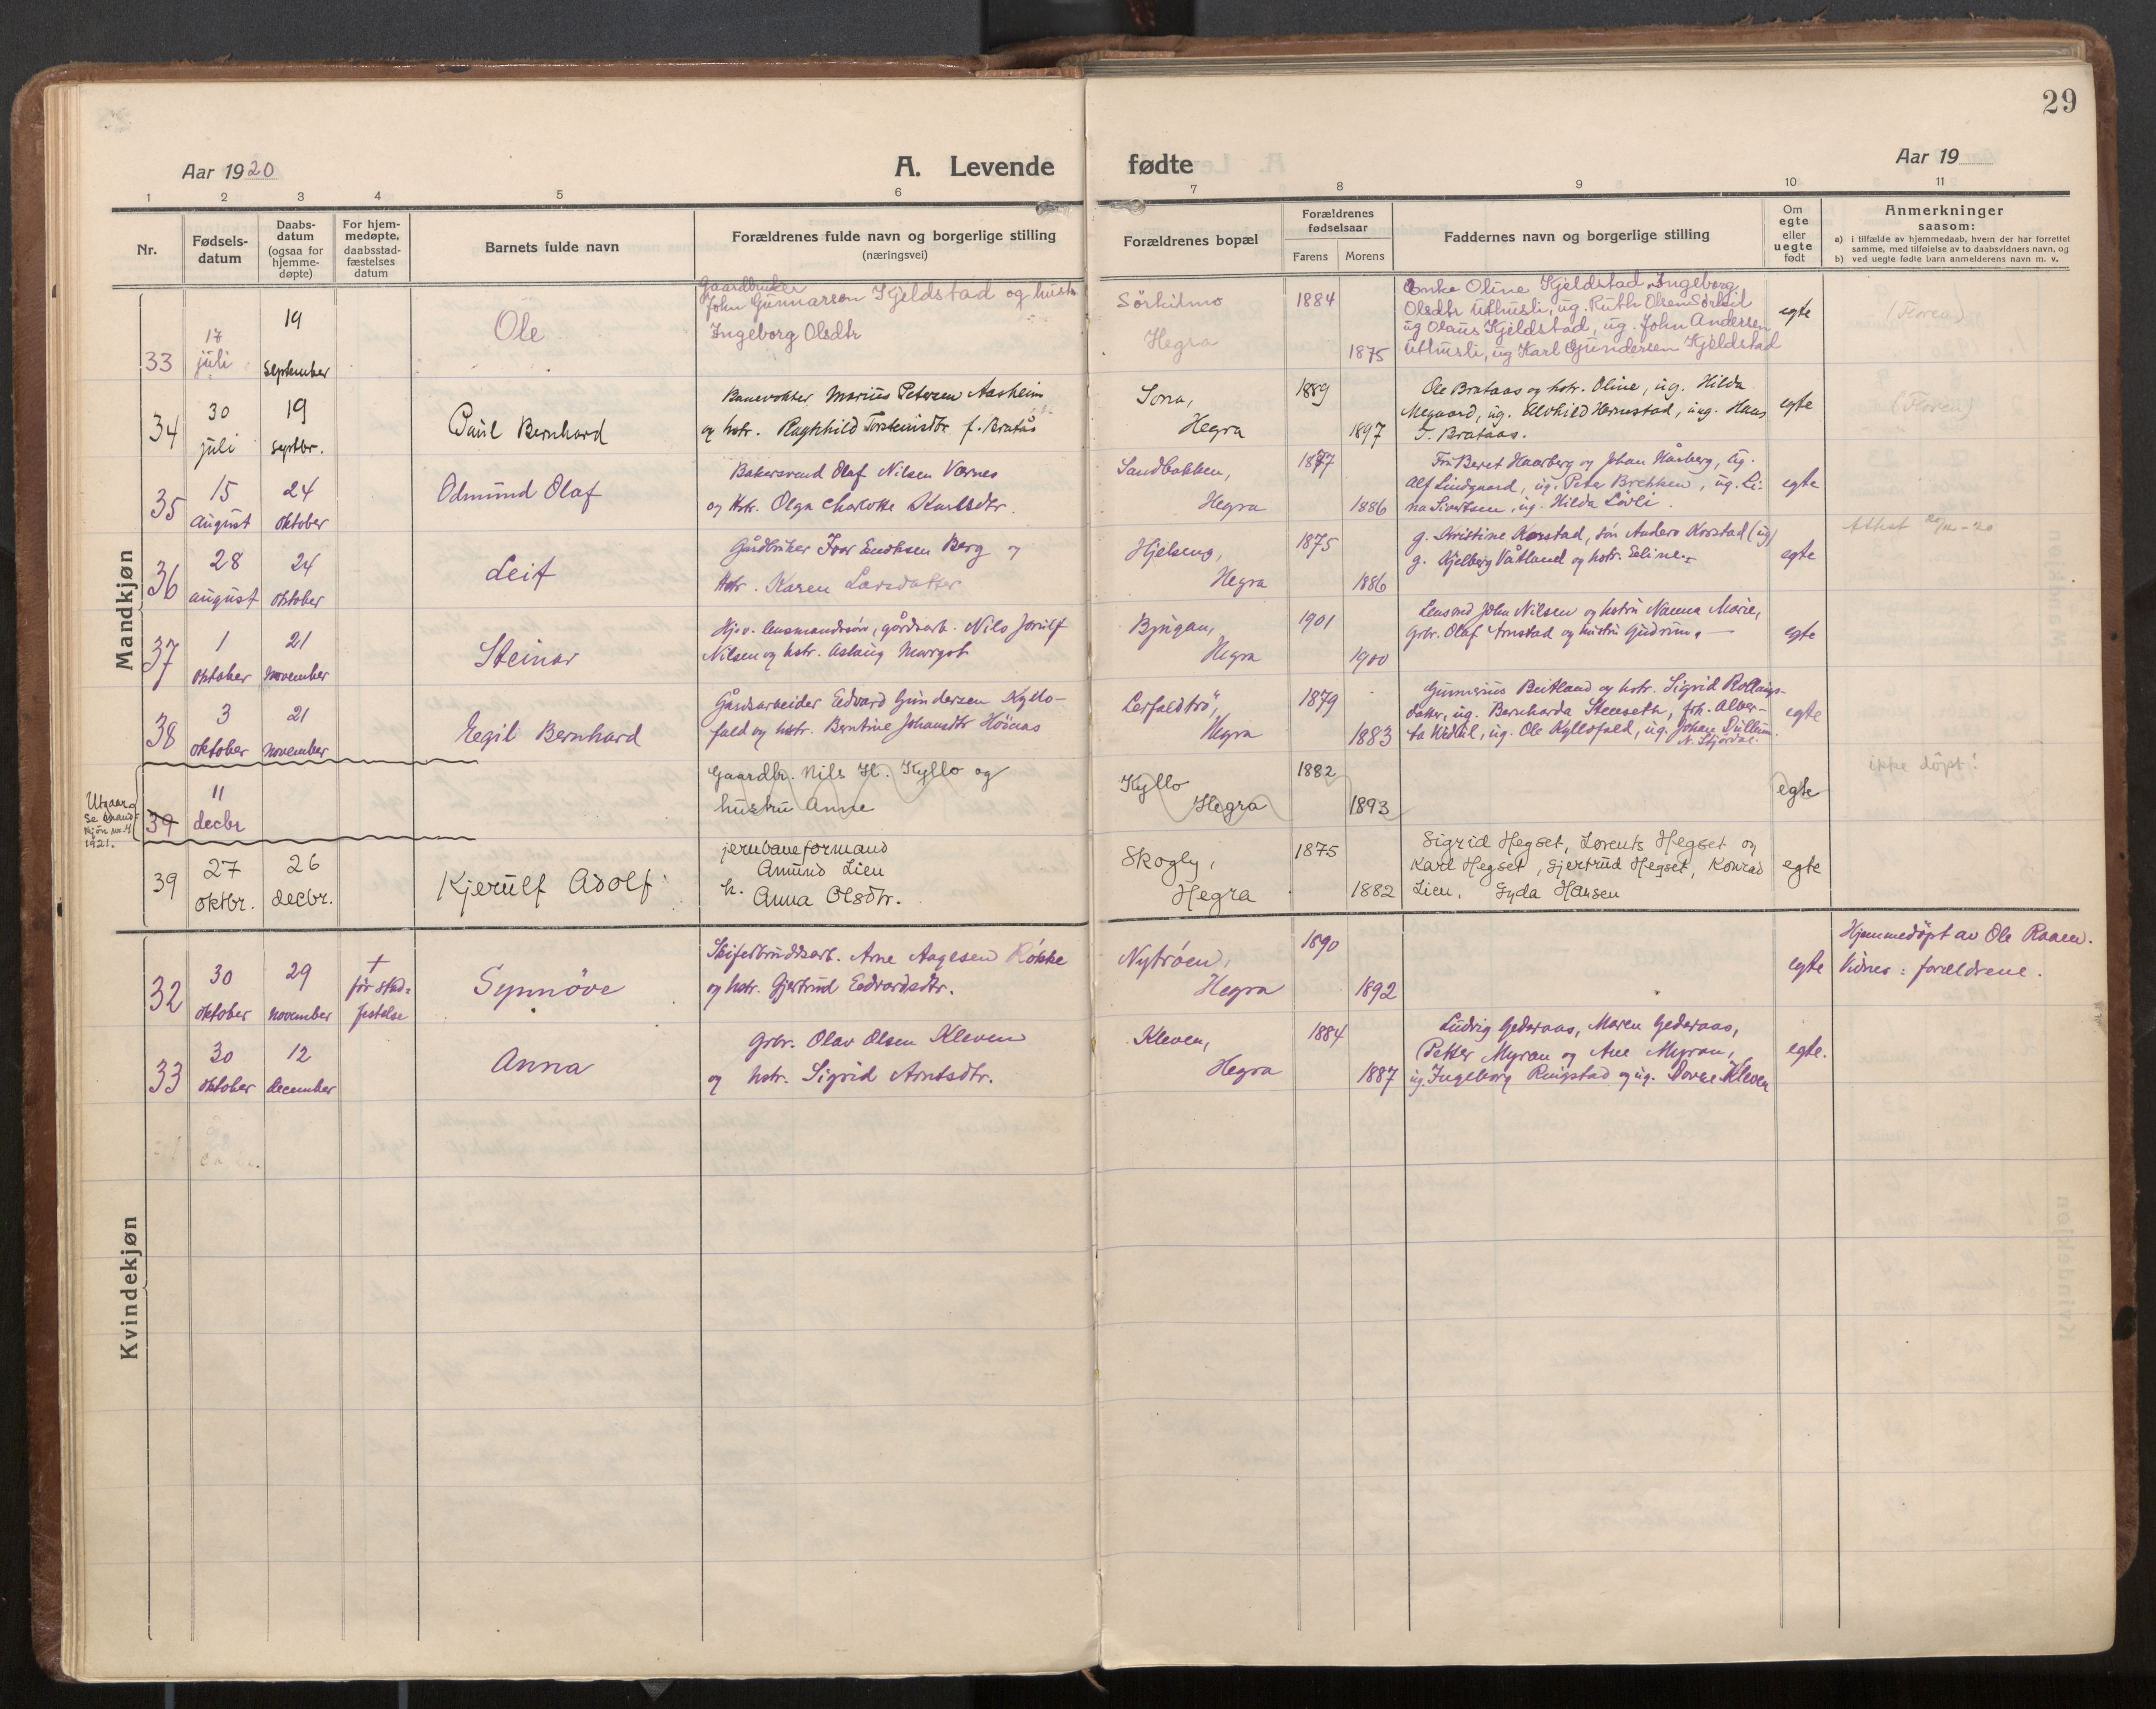 29
Aar 1920
A. Levende fødte
Aar 19
1 2 3 4 5 6 7 8 9 10 11
Nr.
Fødsels-
datum
Daabs-
datum
(ogsaa for
hjemme-
døpte)
For hjem-
medøpte,
daabsstad-
fæstelses
datum
Barnets fulde navn
Forældrenes fulde navn og borgerlige stilling
(næringsvei)
Forældrenes bopæl
Forældrenes
fødselsaar
Farens Morens
Faddernes navn og borgerlige stilling
Om
egte
eller
uegte
født
Anmerkninger
saasom:
a) i tilfælde av hjemmedaab, hvem der har forrettet
samme, med tilføielse av to daabsvidners navn, og
b) ved uegte fødte barn anmelderens navn m. v.
Mandkjøn
33
17
juli
19
september
Ole
Gaardbruker
John Gunnarsen Kjeldstad og hustr
Ingeborg Olsdtr
Sörkilmo
Hegra
1884
1875
Enke Oline Kjeldstad, Ingeborg
Olsdtr Uthusli, ug. Ruth Olsen Sörkil
ug Olaus Kjeldstad, ug. John Andersen
Uthusli, ug Karl Gundersen Kjeldstad
egte
(Floren)
34
30
juli
19
septbr.
Paul Bernhard
Banevokter Marius Petersen Aasheim
og hstr. Ragnhild Torsteinsdtr f. Bratås
Sona,
Hegra
1889
1897
Ole Brataas og hstr. Oline, ug. Hilda
Megaard, ug. Alvhild Hernstad, ug. Hans
T. Brataas.
egte
(Floren)
35
15
august
24
oktober
Odmund Olaf
Bakersvend Olaf Nilsen Værnes
og Hstr. Olga Charlotte Karlsdtr.
Sandbakken,
Hegra
1877
1886
Fru Beret Haarberg og Johan Hårberg, ug.
Alf Lindgaard, ug. Peter Brekken, ug. Li-
na Sivertsen, ug. Hilda Lövli.
egte
36
28
august
24
oktober
Leif
Gårdbruker Ivar Eriksen Berg og
Hstr. Karen Larsdatter
Hjelseng,
Hegra
1875
1886
g. Kristine Korstad, sön Anders Korstad (ug)
g. Kjelberg Våtland og hstr. Eline.
egte
Attest
37
1
oktober
21
november
Steinar
Hj.v. lensmandssön, gårdsarb. Nils Jorulf
Nilsen og hstr. Aslaug Margot
Bjugan,
Hegra
1901
1900
Lensmd John Nilsen og hstru Nanna Marie,
Grbr. Olaf Arnstad og hustru Gudrun.
egte
38
3
oktober
21
november
Egil Bernhard
Gårdsarbeider Edvard Gundersen Kyllo-
fald og hstr. Berntine Johansdtr Höinas
Lerfaldtrö,
Hegra
1879
1883
Gunnerius Beitland og hstr. Sigrid Rollaugs-
datter, ug. Bernharda Stenseth, frk. Alber-
ta Wedul, ug. Ole Kyllofald, ug. Johan Dullum
N. Stjørdal.
egte
Utgaar
se mand-
kjøn nr. 4
1921.
39
11
decbr
Gaardbr. Nils H. Kyllo og
hustru Anne
Kyllo
Hegra
1882
1893
egte
ikke döpt!
39
27
oktbr.
26
decbr.
Kjerulf Adolf
jernbaneformand
Amund Lien
h. Anna Olsdtr.
Skogly,
Hegra
1875
1882
Sigrid Hegset, Lorents Hegset og
Karl Hegset, Gjertrud Hegset, Konrad
Lien, Gyda Hansen
egte
Kvindekjøn
32
30
oktober
29
november
+
før stad-
festelse
Synnöve
Skiferbruddsarb. Arne Aagesen Røkke
og hstr. Gjertrud Edvardsdtr.
Nytrøen,
Hegra
1890
1892
egte
Hjemmedöpt av Ole Raaen.
Vidner: forældrene.
33
30
oktober
12
december
Anna
Grbr. Olav Olsen Kleven
og hstr. Sigrid Arntsdtr.
Kleven,
Hegra
1884
1887
Ludvig Gederaas, Maren Gederaas,
Petter Myran og Ane Myran,
ug. Ingeborg Ringstad og ug. Dorte Kleven
egte.